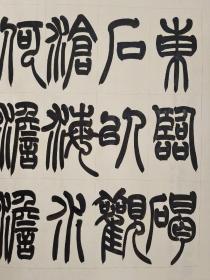 東臨碣
石以觀
滄海水
何澹澹